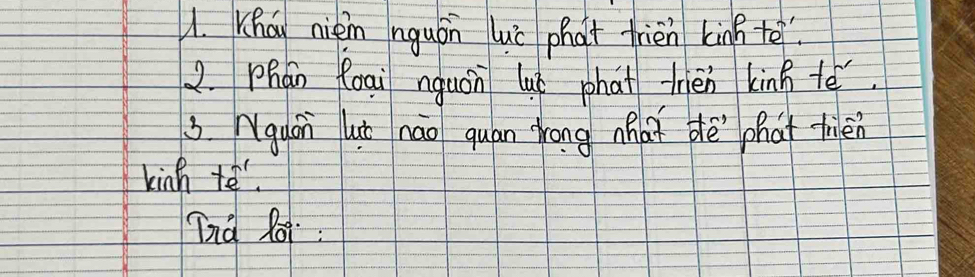 1. Khái niệm nguồn lực phát triển kinh tế.
2. Phân loại nguồn lực phát triển kinh tế.
3. Nguồn lực nào quan trọng nhất để phát triển
kinh tế.
Trả lời: